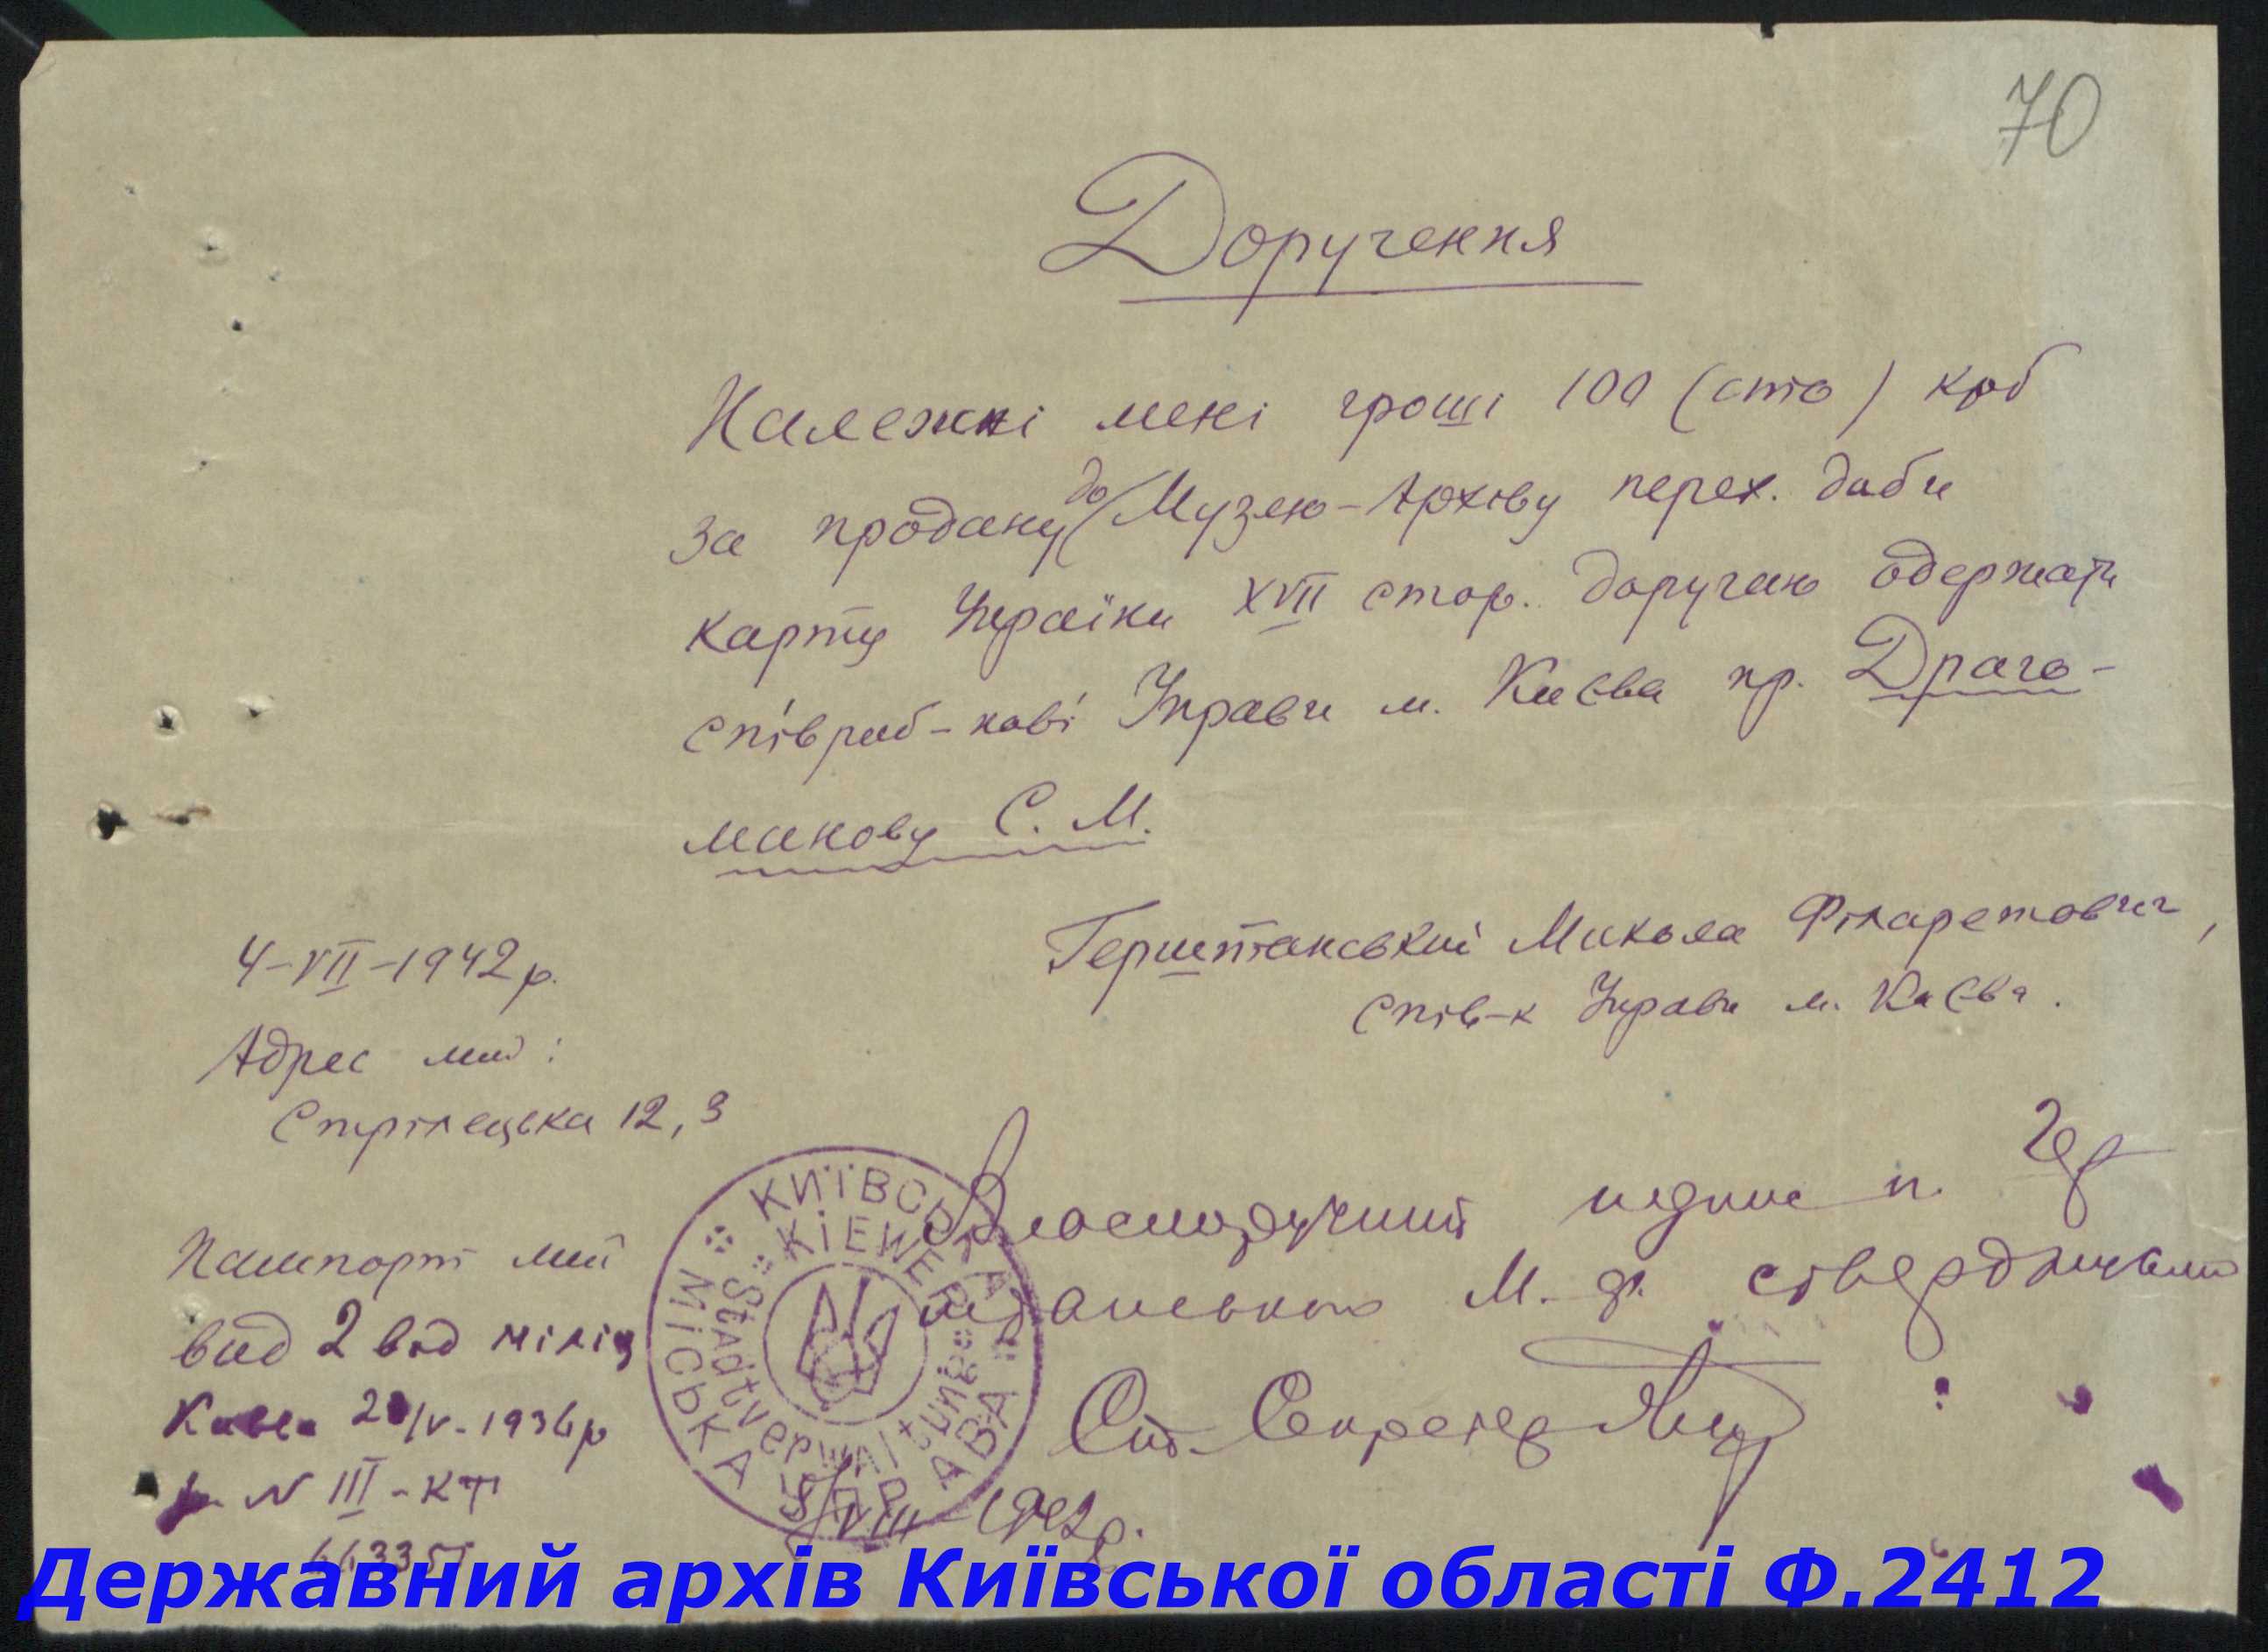 70
Доручення
Належні мені гроші 100 (сто) крб
за продану до Музею-Архіву перех. доби
карту України XVII стор. доручаю одержати
співроб-кові Управи м. Києва пр. Драго-
манову С. М.
Герштанський Микола Філаретович,
спів-к Управи м. Києва.
4-VII-1942 р.
Адрес мій:
Стрілецька 12, 3
Пашпорт мій
вид 2 від міліц
Києва /V-1936 р
N III-КТ
663351
Власноручний підпис п. Гер
штанського М. Ф. стверджую
Ст. Секретар
8/VIII-1942 р.
КИЇВСЬКА МІСЬКА УПРАВА
KIEWER Stadtverwaltung
Державний архів Київської області Ф.2412